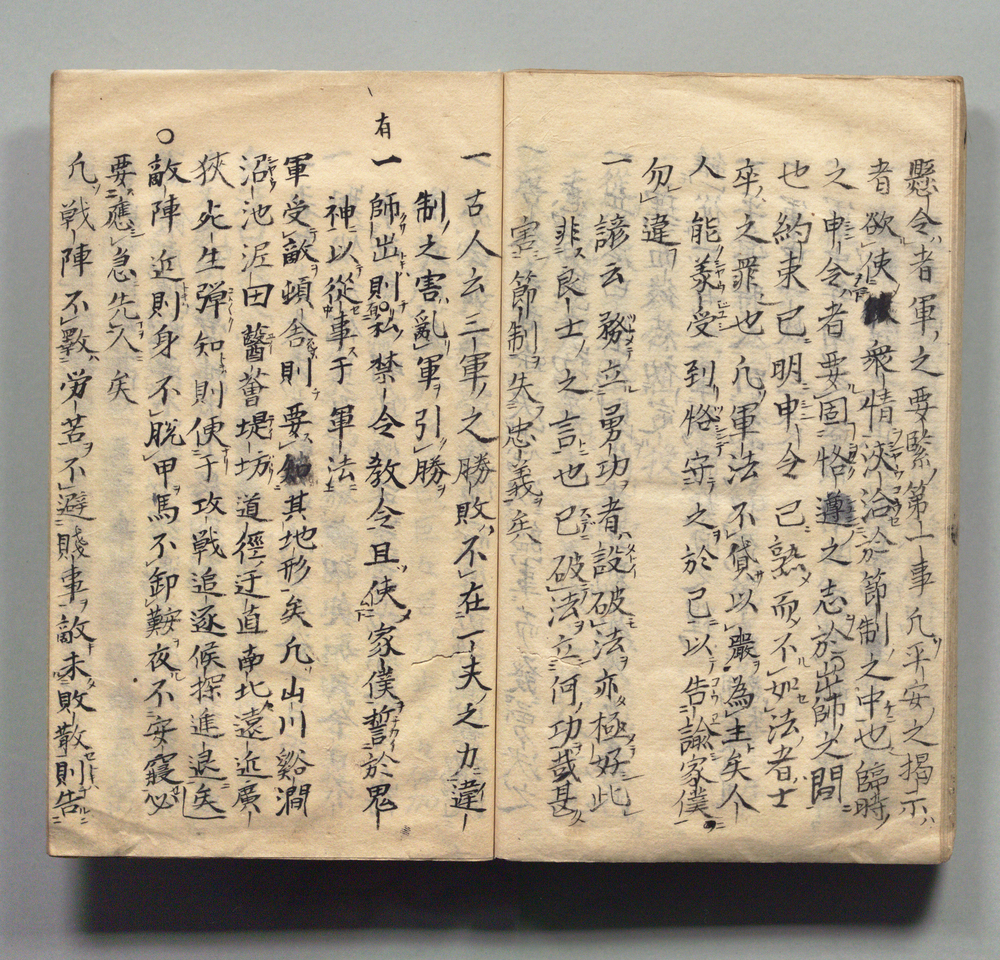 懸令者軍之要緊第一事凡平安之揭示
者欲使衆情浹洽於節制之中也臨時
之申令者要固恪遵之志於出師之間
也約束已明申令已熟而不如法者士
卒之罪也凡軍法不貸以嚴為主矣人
人能義受到恪守之於己以告諭家僕
勿違
一諺云務立勇功者設破法亦極好此
非良士之言也已破法立何功哉甚
害節制失忠義矣
一古人云三軍之勝敗不在一夫之力違
制之害亂軍引勝
有
一師出則私禁令教令且使家僕誓於鬼
神以從事于軍法
軍受敵頓舎則要其地形矣凡山川谿澗
沼池泥田堤坊道徑迂直南北遠近廣
狹死生弾知則便于攻戦追逐候探進退矣
〇
敵陣近則身不脱甲馬不卸鞍夜不安寝必
要應急先入矣
凡戦陣不労苦不避賤事敵未敗散則告